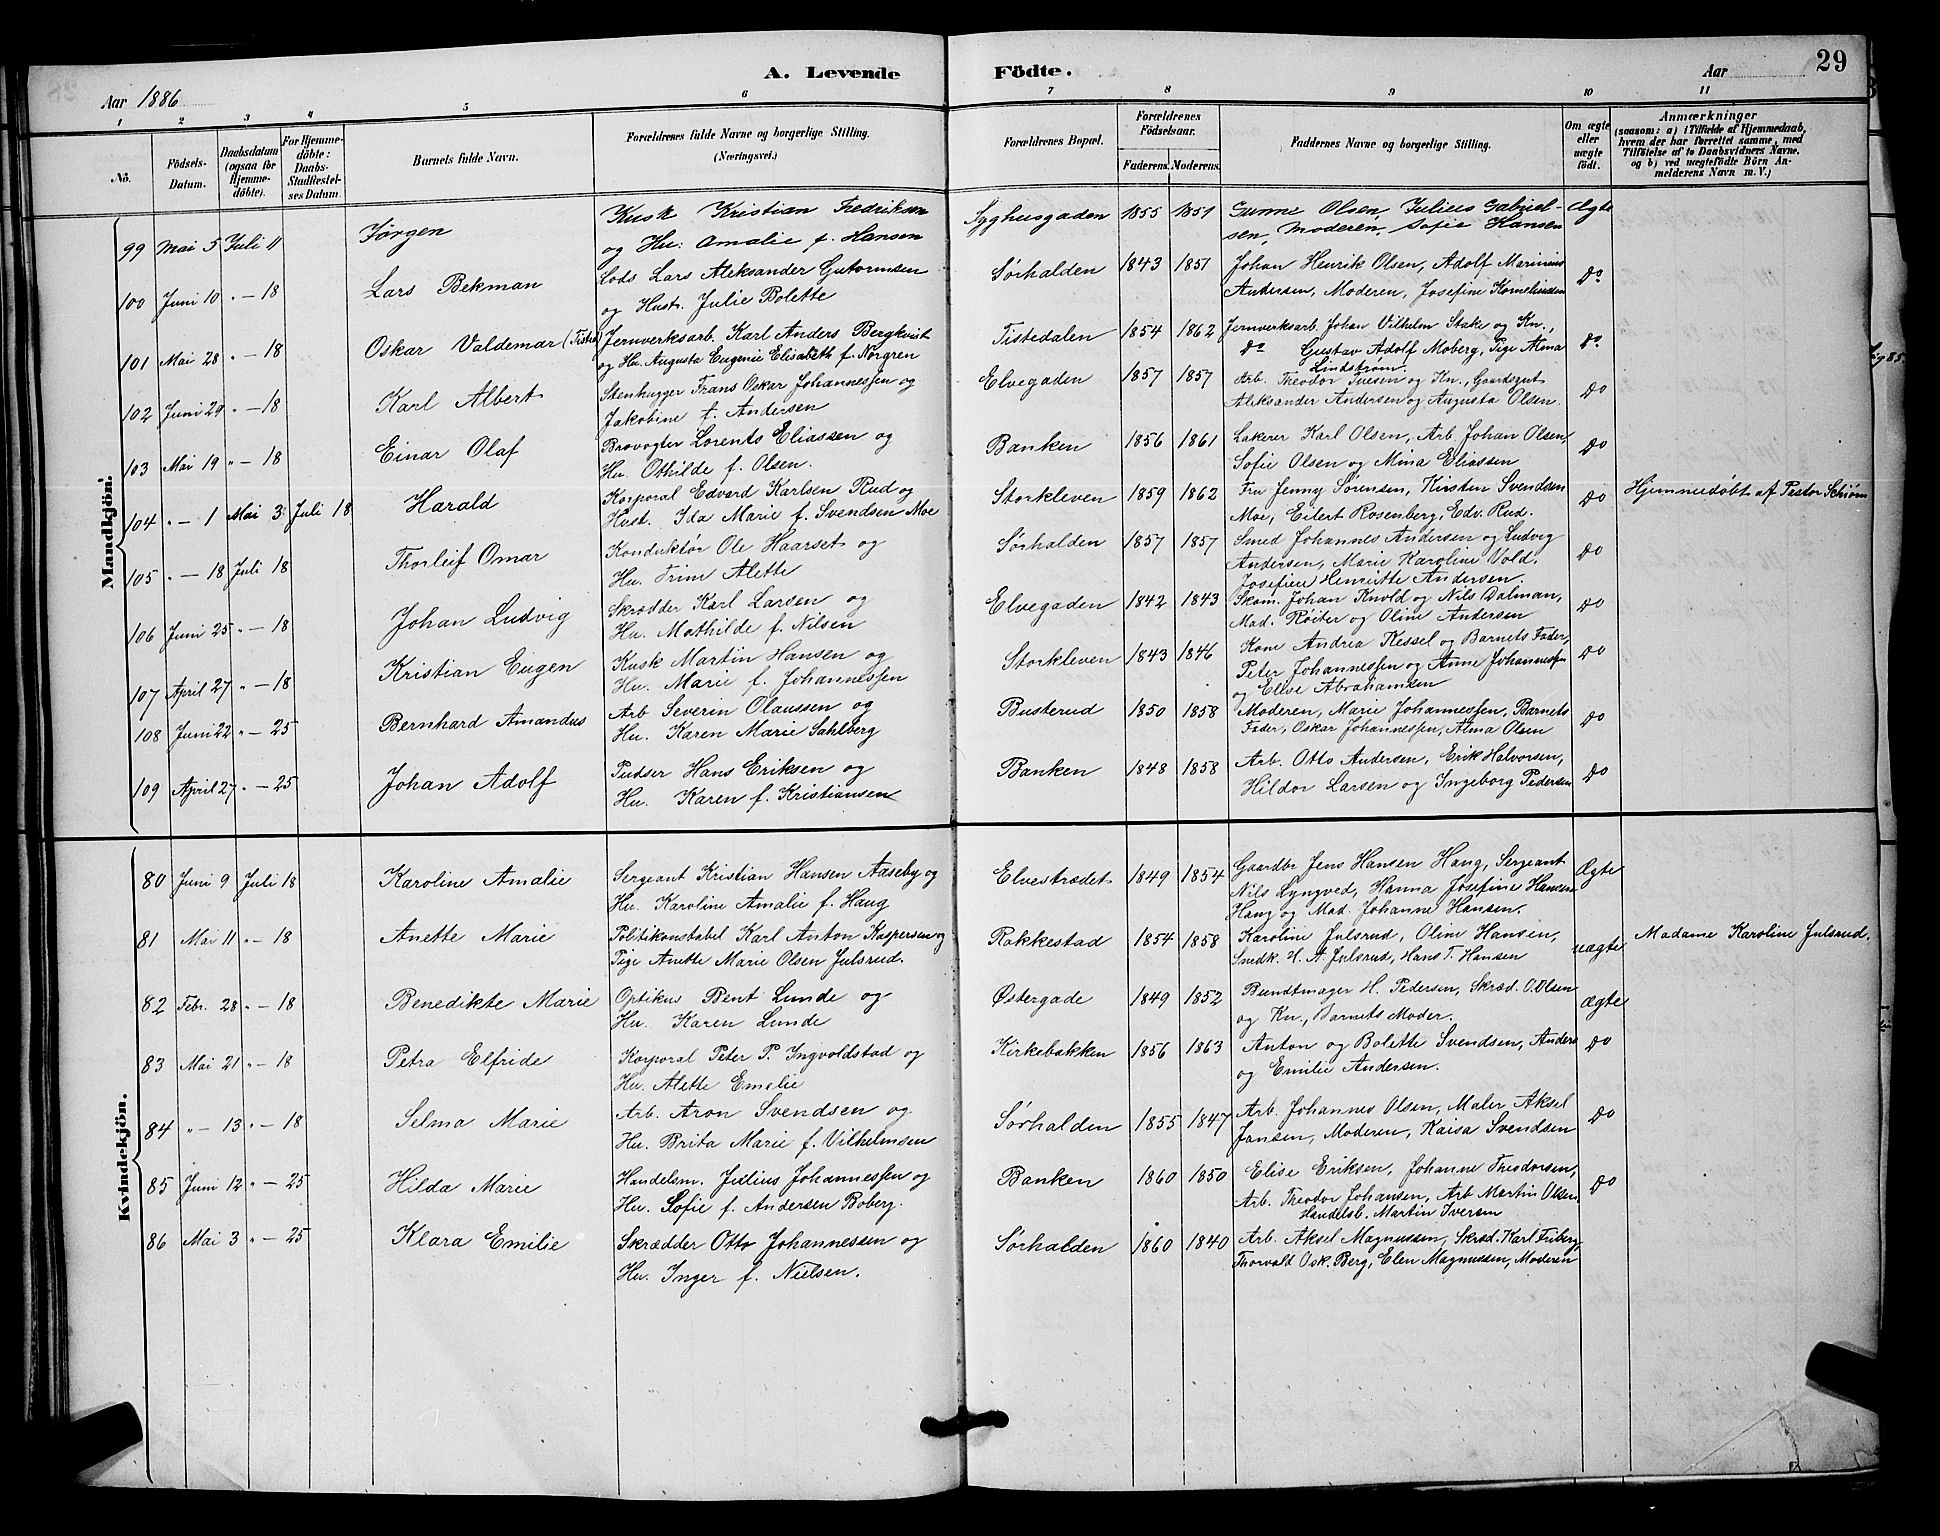 A. Levende Födte.
29
Aar 1886
Aar
1 2 3 4 5 6 7 8 9 10 11
No.
Födsels-Datum.
Daabsdatum (ogsaa for Hjemme-döbte).
For Hjemme-döbte: Daabs-Stadfæstel-ses Datum.
Barnets fulde Navn.
Forældrenes fulde Navne og borgerlige Stilling. (Næringsvei.)
Forældrenes Bopæl.
Forældrenes Födselsaar.
Faderens. Moderens.
Faddernes Navne og borgerlige Stilling.
Om ægte eller uægte født.
Anmærkninger
(saasom: a) i Tilfælde af Hjemmedaab,
hvem der har forrettet samme, med
Tilföielse af to Daabsvidners Navne,
og b) ved uægtefödte Börn An-
melderens Navn m. V.)
Mandkjön.
99 Mai 5 Juli 11 Jørgen Kusk Kristian Fredriksen Syghusgaden 1855 1851 Gunne Olsen, Julius Gabriel- Ægte
og Hu: Amalie f. Hansen sen, Moderen, Sofie Hansen
100 Juni 10 " - 18 Lars Bekman Lods Lars Aleksander Gutormsen Sørhalden 1843 1851 Johan Henrik Olsen, Adolf Marinius Do
og Hust. Julie Bolette Andersen, Moderen, Josefine Korneliussen
101 Mai 28 " - 18 Oskar Valdemar (Tisted) Jernverksarb. Karl Anders Bergkvist Tistedalen 1854 1862 Jernverksarb. Johan Vilhelm Stake og Kn., Do
og Hu. Augusta Eugenie Elisabeth f. Norgren Do Gustav Adolf Moberg, Pige Alma
Lindstrøm.
102 Juni 29 " - 18 Karl Albert Stenhugger Frans Oskar Johannessen og Elvegaden 1857 1857 Arb. Theodor Tuesen og Kn., Gaardsgut Do
Jakobine f. Andersen Aleksander Andersen og Augusta Olsen.
103 Mai 19 " - 18 Einar Olaf Brovogter Lorents Eliassen og Banken 1856 1861 Lakerer Karl Olsen, Arb Johan Olsen Do
Hu. Othilde f. Olsen. Sofie Olsen og Mina Eliassen
104 " - 1 Mai 3 Juli 18 Harald Korporal Edvard Karlsen Rud og Storkleven 1859 1862 Fru Jenny Sørensen, Kirsten Svendsen Do Hjemmedøbt af Pastor Schiørn
Hust. Ida Marie f. Svendsen Moe Moe, Eilert Rosenberg, Edv. Rud.
105 " - 18 Juli 18 Thorleif Omar Konduktør Ole Haarset og Sørhalden 1857 1857 Smed Johannes Andersen og Ludvig Do
Hu. Trine Alette Andersen, Marie Karoline Vold.
Josefine Henriette Andersen.
106 Juni 25 " - 18 Johan Ludvig Skrædder Karl Larsen og Elvegaden 1842 1843 Skom. Johan Knold og Nils Dalman, Do
Hu. Mathilde f. Nilsen Mad. Røiter og Oline Andersen
107 April 27 " - 18 Kristian Eugen Kusk Martin Hansen og Storkleven 1843 1846 Kone Andrea Kessel og Barnets Fader, Do
Hu. Marie f. Johannessen Peter Johannessen og Anne Johannessen
og Elise Abrahamsen
108 Juni 22 " - 25 Bernhard Amandus Arb Severin Olaussen og Busterud 1850 1858 Moderen, Marie Johannessen, Barnets Do
Hu. Karen Marie Sahlberg Fader, Oskar Johannessen, Alma Olsen
109 April 27 " - 25 Johan Adolf Pudser Hans Eriksen og Banken 1848 1858 Arb. Otto Andersen, Erik Halvorsen, Do
Hu. Karen f. Kristiansen Hildor Larsen og Ingeborg Pedersen
Kvindekjön.
80 Juni 9 Juli 18 Karoline Amalie Sergeant Kristian Hansen Aaseby og Elvestrædet 1849 1854 Gaardbr Jens Hansen Haug, Sergeant Ægte
Hu. Karoline Amalie f. Haug Nils Lyngved, Hanna Josefine Hansen
Haug og Mad. Johanne Hansen.
81 Mai 11 " - 18 Anette Marie Politikonstabel Karl Anton Kaspersen og Rakkestad 1854 1858 Karoline Julsrud, Oline Hansen, uægte Madame Karoline Julsrud.
Pige Anette Marie Olsen Julsrud. Snedk. H. A. Julsrud, Hans T. Hansen
82 Febr. 28 " - 18 Benedikte Marie Optikus Bent Lunde og Østergade 1849 1852 Bundtmager H. Pedersen, Skræd. O. Olsen ægte
Hu. Karen Lunde og Kn., Barnets Moder.
83 Mai 21 " - 18 Petra Elfride Korporal Peter P. Ingvoldstad og Kirkebakken 1856 1863 Anton og Bolette Svendsen, Anders Do
Hu. Alette Emelie og Emilie Andersen.
84 " - 13 " - 18 Selma Marie Arb. Aron Svendsen og Sørhalden 1855 1847 Arb. Johannes Olsen, Maler Aksel Do
Hu. Brita Marie f. Vilhelmsen Jansen, Moderen, Kaisa Svendsen
85 Juni 12 " - 25 Hilda Marie Handelsm. Julius Johannessen og Banken 1860 1850 Elise Eriksen, Johanne Theodorsen, Do
Hu. Sofie f. Andersen Boberg. Arb. Theodor Johansen, Arb Martin Olsen
Handelsb. Martin Iversen
86 Mai 3 " - 25 Klara Emilie Skrædder Otto Johannessen og Sørhalden 1860 1840 Arb. Aksel Magnussen, Skræd. Karl Friberg,
Hu. Inger f. Nielsen. Thorvald Osk. Berg, Elen Magnussen, Moderen